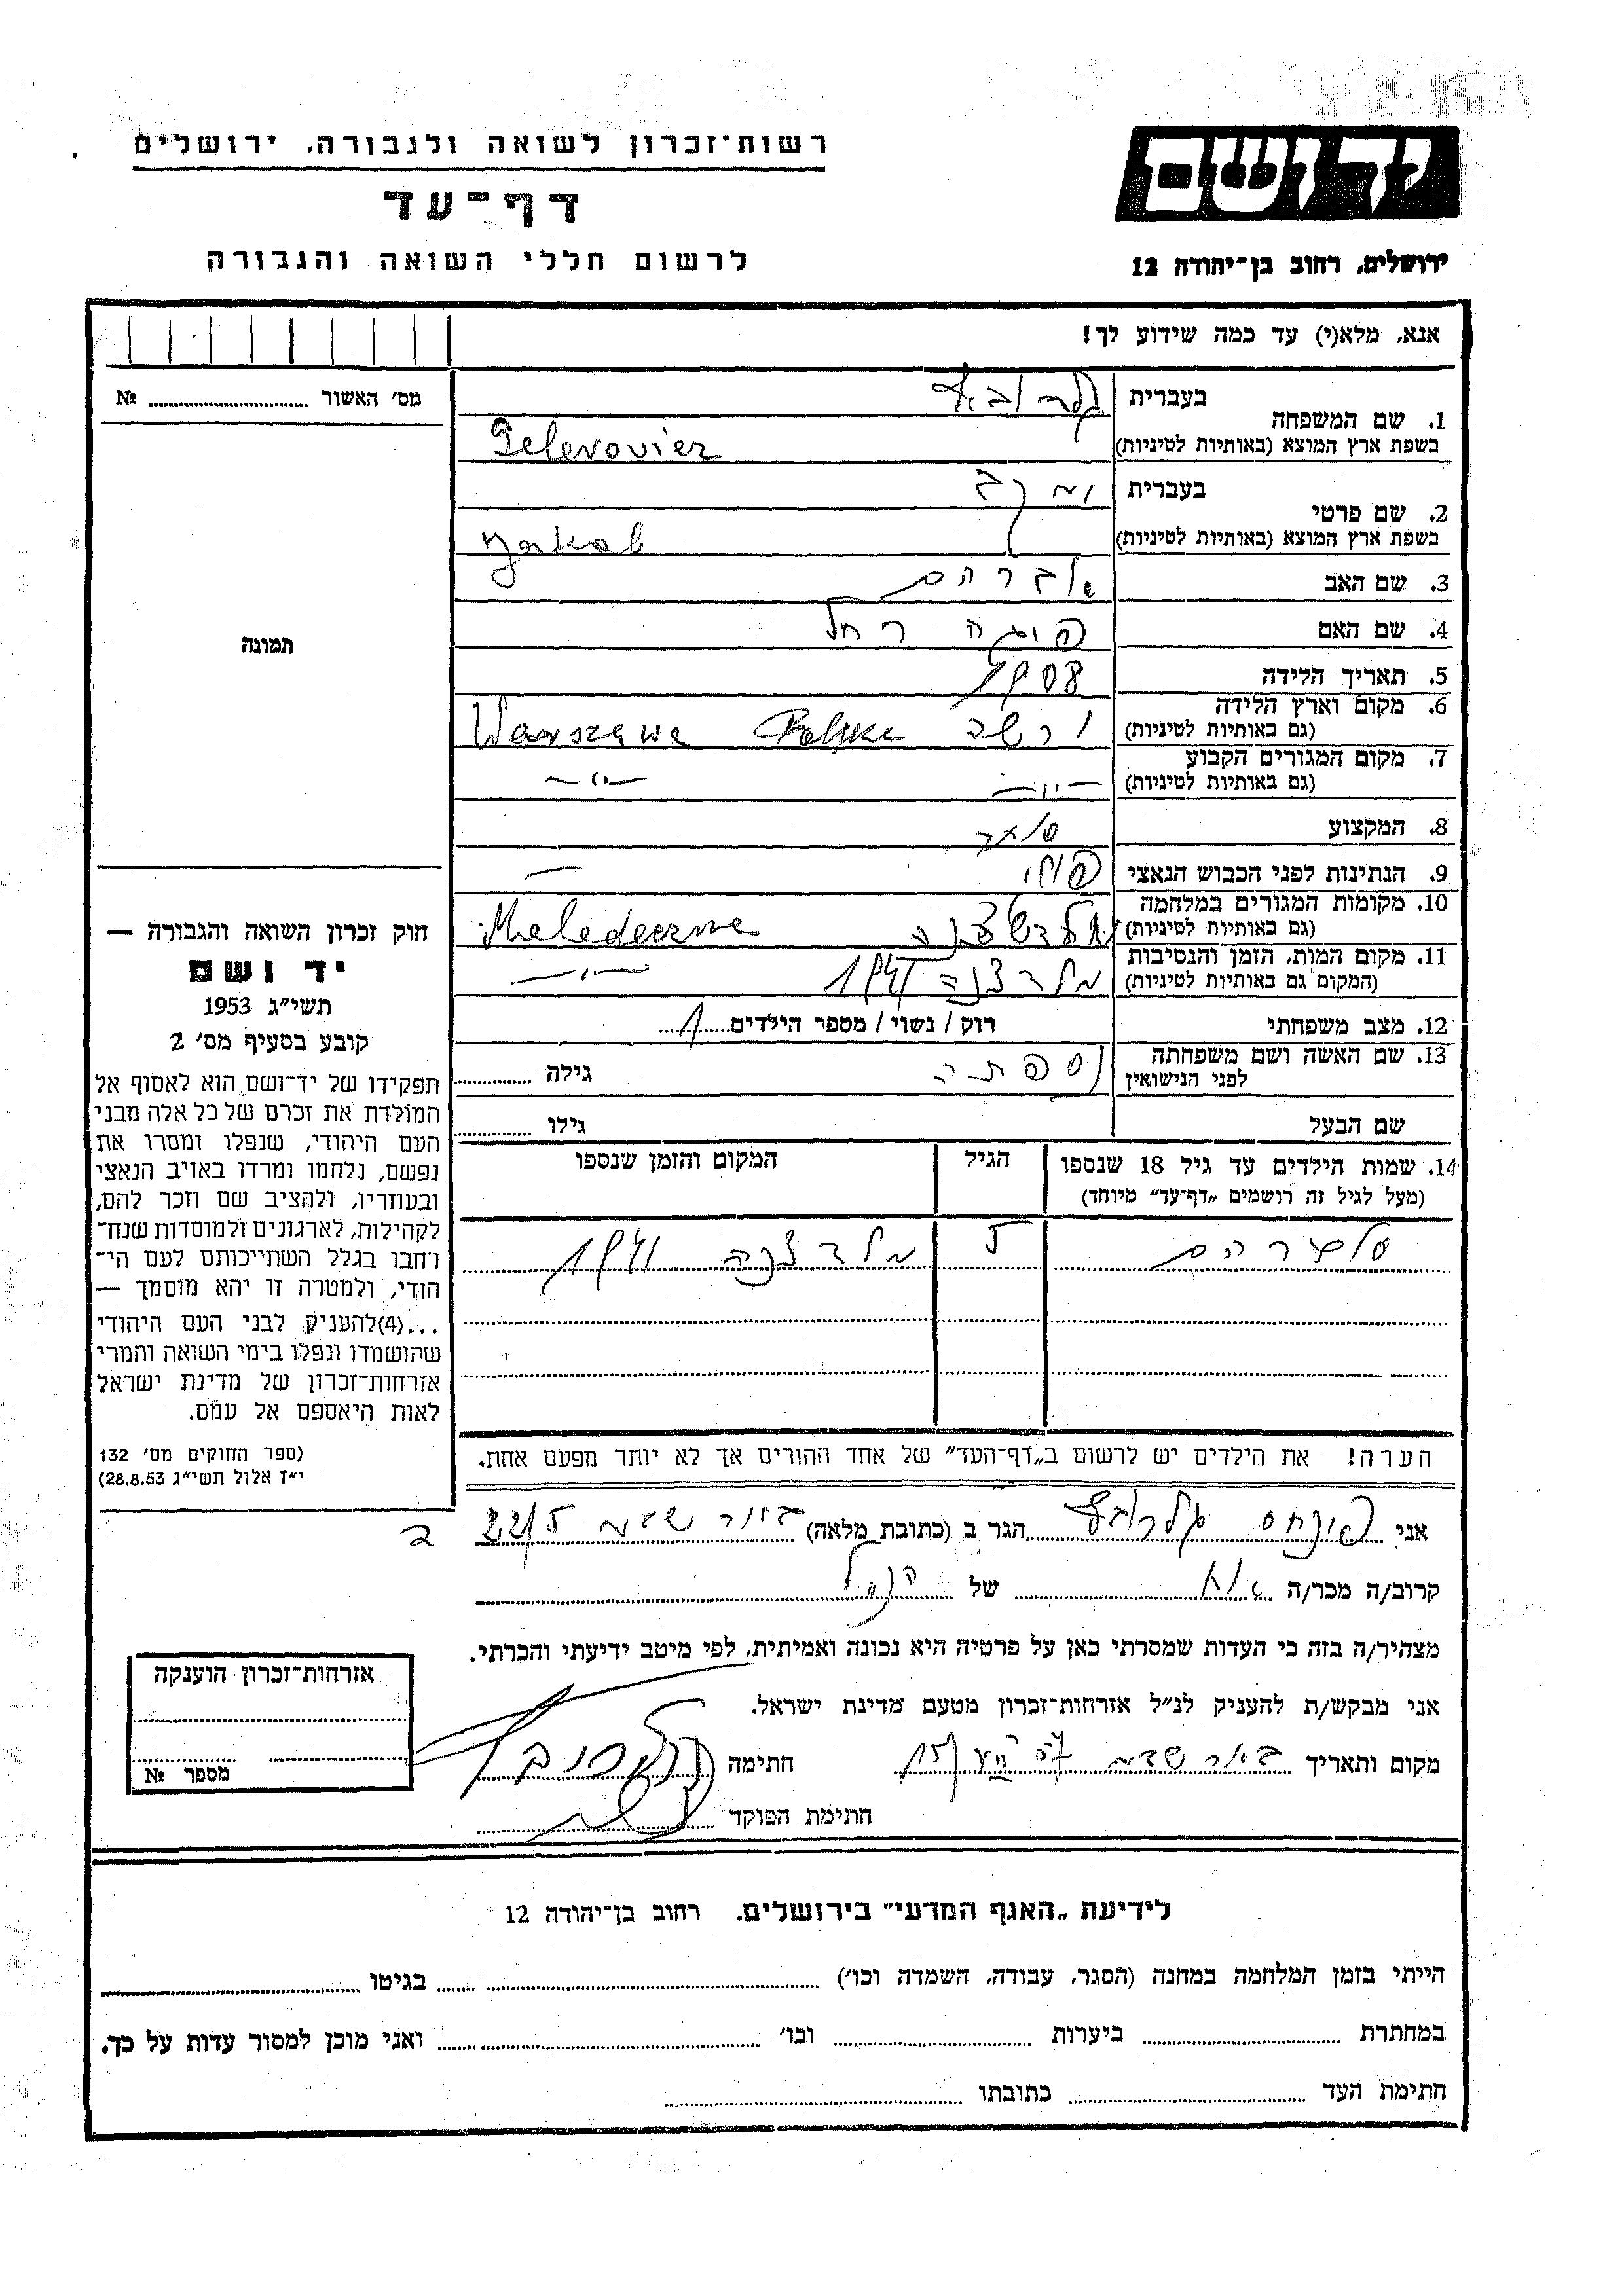 רשות־זכרון לשואה ולגבורה, ירושלים
דף־עד
לרשום חללי השואה והגבורה
יד ושם
ירושלים, רחוב בן־יהודה 12
אנא, מלא(י) עד כמה שידוע לך!
מס׳ האשור № ........
תמונה
1. שם המשפחה
בעברית
בשפת ארץ המוצא (באותיות לטיניות)
2. שם פרטי
בעברית
בשפת ארץ המוצא (באותיות לטיניות) Jakob
3. שם האב אברהם
4. שם האם רחל
5. תאריך הלידה 1908
6. מקום וארץ הלידה (גם באותיות לטיניות) ורשה Polska Warszawa
7. מקום המגורים הקבוע (גם באותיות לטיניות) —״— —״—
8. המקצוע
9. הנתינות לפני הכבוש הנאצי —
10. מקומות המגורים במלחמה (גם באותיות לטיניות)
11. מקום המות, הזמן והנסיבות (המקום גם באותיות לטיניות) 1941 —״—
12. מצב משפחתי רוק / נשוי / מספר הילדים 1
13. שם האשה ושם משפחתה לפני הנישואין גילה
שם הבעל גילו
14. שמות הילדים עד גיל 18 שנספו (מעל לגיל זה רושמים „דף־עד״ מיוחד) הגיל המקום והזמן שנספו
1941
הערה! את הילדים יש לרשום ב„דף־העד״ של אחד ההורים אך לא יותר מפעם אחת.
חוק זכרון השואה והגבורה —
יד ושם
תשי״ג 1953
קובע בסעיף מס׳ 2
תפקידו של יד־ושם הוא לאסוף אל
המולדת את זכרם של כל אלה מבני
העם היהודי, שנפלו ומסרו את
נפשם, נלחמו ומרדו באויב הנאצי
ובעוזריו, ולהציב שם וזכר להם,
לקהילות, לארגונים ולמוסדות שנח־
רחבו בגלל השתייכותם לעם הי־
הודי, ולמטרה זו יהא מוסמך —
...(4)להעניק לבני העם היהודי
שהושמדו ונפלו בימי השואה והמרי
אזרחות־זכרון של מדינת ישראל
לאות היאספם אל עמם.
(ספר החוקים מס׳ 132
י״ז אלול תשי״ג 28.8.53)
אני פינחס הגר ב (כתובת מלאה) באר שבע 22/5
קרוב/ה מכר/ה אח של הנ״ל
מצהיר/ה בזה כי העדות שמסרתי כאן על פרטיה היא נכונה ואמיתית, לפי מיטב ידיעתי והכרתי.
אני מבקש/ת להעניק לנ״ל אזרחות־זכרון מטעם מדינת ישראל.
מקום ותאריך באר שבע חתימה
חתימת הפוקד
אזרחות־זכרון הוענקה
מספר №
לידיעת „האגף המדעי״ בירושלים. רחוב בן־יהודה 12
הייתי בזמן המלחמה במחנה (הסגר, עבודה, השמדה וכו׳) בגיטו
במחתרת ביערות וכו׳ ואני מוכן למסור עדות על כך.
חתימת העד כתובתו